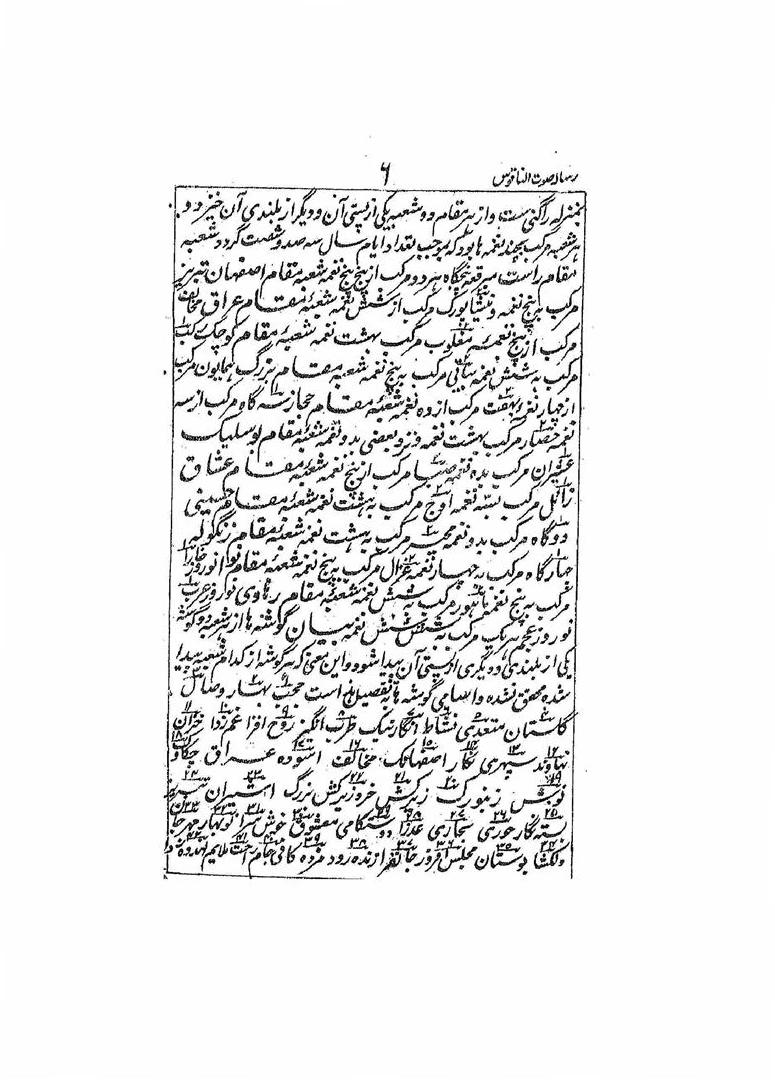 رساله صوت الناقوس
۶
بمنزله راگنی ست و از هر مقام دو شعبه یکی از پستی آن و دیگر از بلندی آن خیزد و
هر شعبه مرکب بچند نغمه ها بود که بموجب تعداد ایام سال سه صد و شصت گردد شعبه
مقام راست مبرقع پنجگاه هر دو مرکب از پنج پنج نغمه شعبه مقام اصفهان تبریز
مرکب به پنج نغمه و نیشاپورک مرکب از شش نغمه شعبهٔ مقام عراق مخالف
مرکب از پنج نغمه مغلوب مرکب بهشت نغمه شعبهٔ مقام کوچک رکب
مرکب به شش نغمه بیاتی مرکب به پنج نغمه شعبه مقام بزرگ همایون مرکب
از چهار نغمه نهفت مرکب از ده نغمه شعبهٔ مقام حجاز سه گاه مرکب از سه
نغمه حصار مرکب بهشت نغمه و نزد بعضی بدو نغمه شعبهٔ مقام بوسلیک
عشیران مرکب بده نغمه صبا مرکب از پنج نغمه شعبه مقام عشاق
زابل مرکب بسه نغمه اوج مرکب به هشت نغمه شعبهٔ مقام حسینی
دوگاه مرکب بدو نغمه محیر مرکب به هشت نغمه شعبهٔ مقام زنگوله
چهارگاه مرکب به چهار نغمه غزال مرکب به پنج نغمه شعبهٔ مقام نوا نوروز خارا
مرکب به پنج نغمه ماهور مرکب به شش نغمه شعبهٔ مقام رهاوی نوروز عرب
نوروز عجم هر یک مرکب به شش شش نغمه بیان گوشه ها از هر شعبه دو گوشه
یکی از بلندی و دیگری از پستی آن پیدا شود و این معنی که هر گوشه از کدام شعبه پیدا
شده محقق نشده و اسامی گوشه ها به تفصیل این است بهار وصال
گلستان نشاط نگارنیک طرب انگیز روح افزا غم زدا خزان
نهاوند سپهری نگار اصفهانک مخالف آسوده عراق چکاو
زنبورک زرکش خروزرکش بزرگ تبریز
بسته نگار حوری حجازی عذرا دوستکامی معشوق خوش سرا نوبهار مهرجان
دلکشا بوستان مجلس افروز جانفزا زنده رود مژده کافی جام